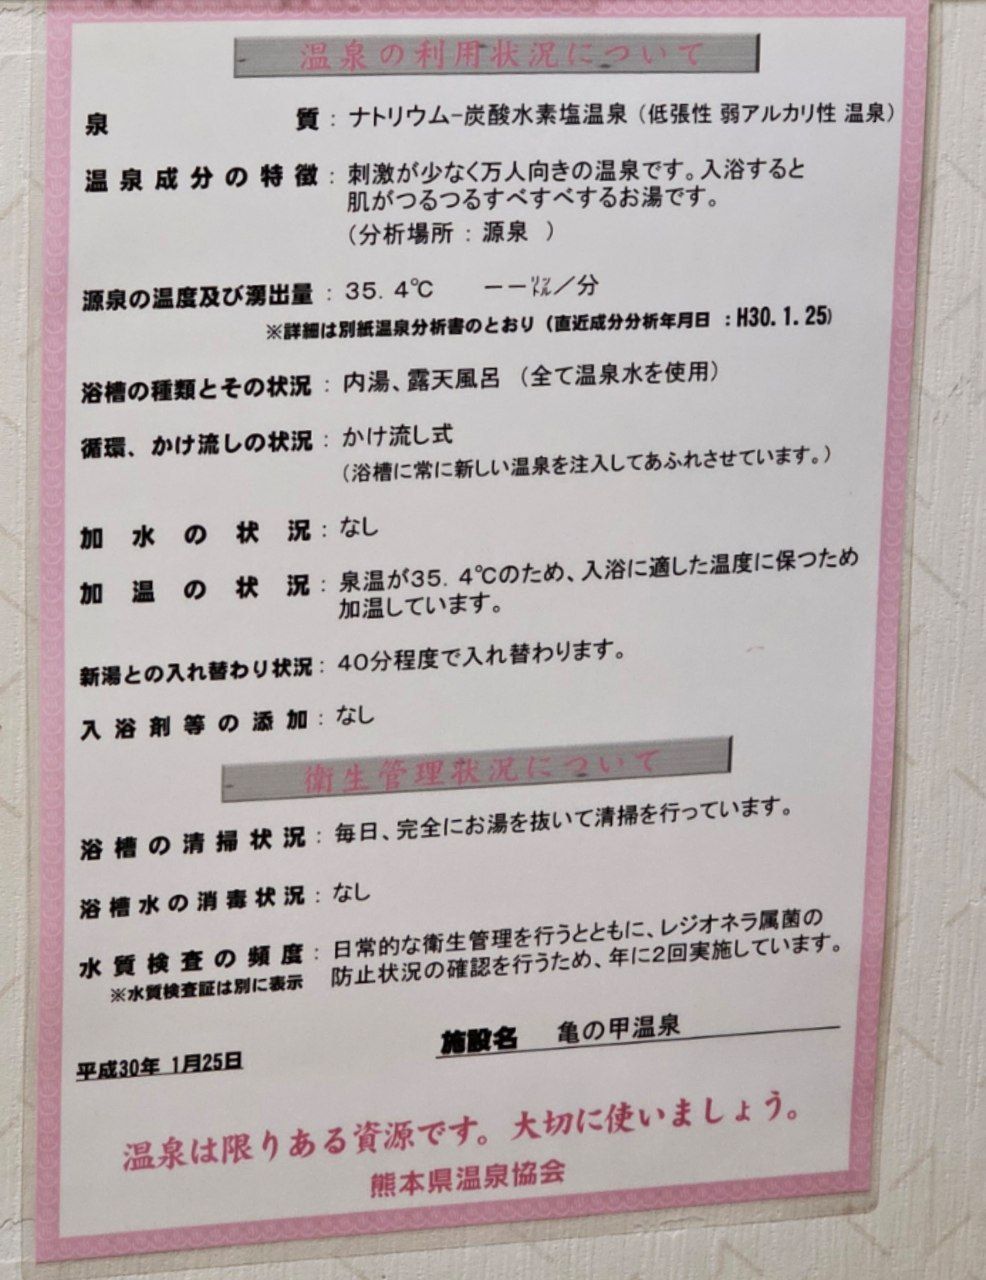 温泉の利用状況について
泉質：ナトリウム−炭酸水素塩温泉（低張性 弱アルカリ性 温泉）
温泉成分の特徴：刺激が少なく万人向きの温泉です。入浴すると
肌がつるつるすべすべするお湯です。
（分析場所：源泉 ）
源泉の温度及び湧出量：35．4℃ −−㍑／分
※詳細は別紙温泉分析書のとおり（直近成分分析年月日 ：H30.1.25）
浴槽の種類とその状況：内湯、露天風呂 （全て温泉水を使用）
循環、かけ流しの状況：かけ流し式
（浴槽に常に新しい温泉を注入してあふれさせています。）
加水の状況：なし
加温の状況：泉温が35．4℃のため、入浴に適した温度に保つため
加温しています。
新湯との入れ替わり状況：40分程度で入れ替わります。
入浴剤等の添加：なし
衛生管理状況について
浴槽の清掃状況：毎日、完全にお湯を抜いて清掃を行っています。
浴槽水の消毒状況：なし
水質検査の頻度：日常的な衛生管理を行うとともに、レジオネラ属菌の
※水質検査証は別に表示 防止状況の確認を行うため、年に2回実施しています。
施設名 亀の甲温泉
平成30年 1月25日
温泉は限りある資源です。大切に使いましょう。
熊本県温泉協会